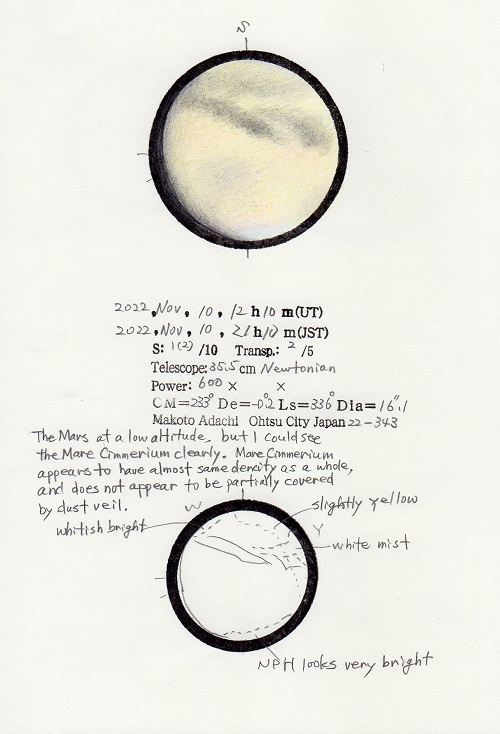 S
2022, Nov, 10, 12 h 10 m (UT)
2022, Nov, 10, 21 h 10 m (JST)
S: 1(2) /10 Transp.: 2 /5
Telescope: 35.5 cm Newtonian
Power: 600 × ×
CM=233° De=-0.2 Ls=336° Dia=16".1
Makoto Adachi Ohtsu City Japan 22-343
The Mars at a low altitude, but I could see
the Mare Cimmerium clearly. Mare Cimmerium
appears to have almost same density as a whole,
and does not appear to be partially covered
by dust veil.
W
slightly yellow
whitish bright
Y
white mist
NPH looks very bright